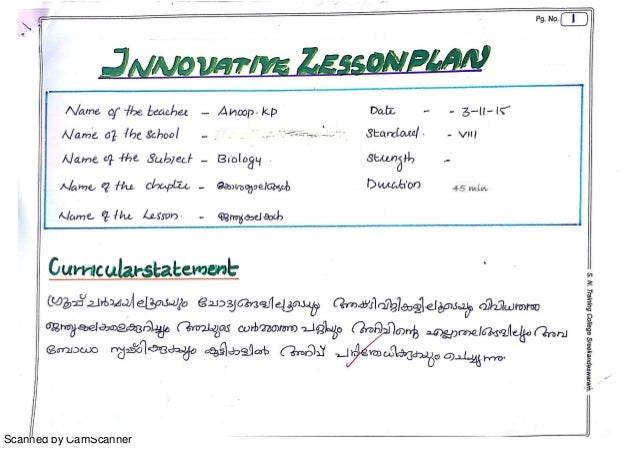 Pg. No. 1
INNOVATIVE LESSON PLAN
Name of the teacher - Anoop. KP
Date - - 3-11-15
Name of the School -
Standard. - VIII
Name of the Subject - Biology.
Strength -
Name of the chapter -
Duration 45 min
Name of the Lesson. - ജന്തുകലകൾ
Curricular statement
ഗ്രൂപ്പ് ചർച്ചയിലൂടെയും ചോദ്യങ്ങളിലൂടെയും വിവിധതരം
ജന്തുകലകളെക്കുറിച്ചും അവയുടെ ധർമ്മത്തെ പറ്റിയും അറിവിന്റെ എല്ലാതലങ്ങളിലും അവ
ബോധം സൃഷ്ടിക്കുകയും കുട്ടികളിൽ അറിവ് പരിശോധിക്കുകയും ചെയ്യുന്നു.
S. N. Training College Sreekandeswaram.
Scanned by CamScanner